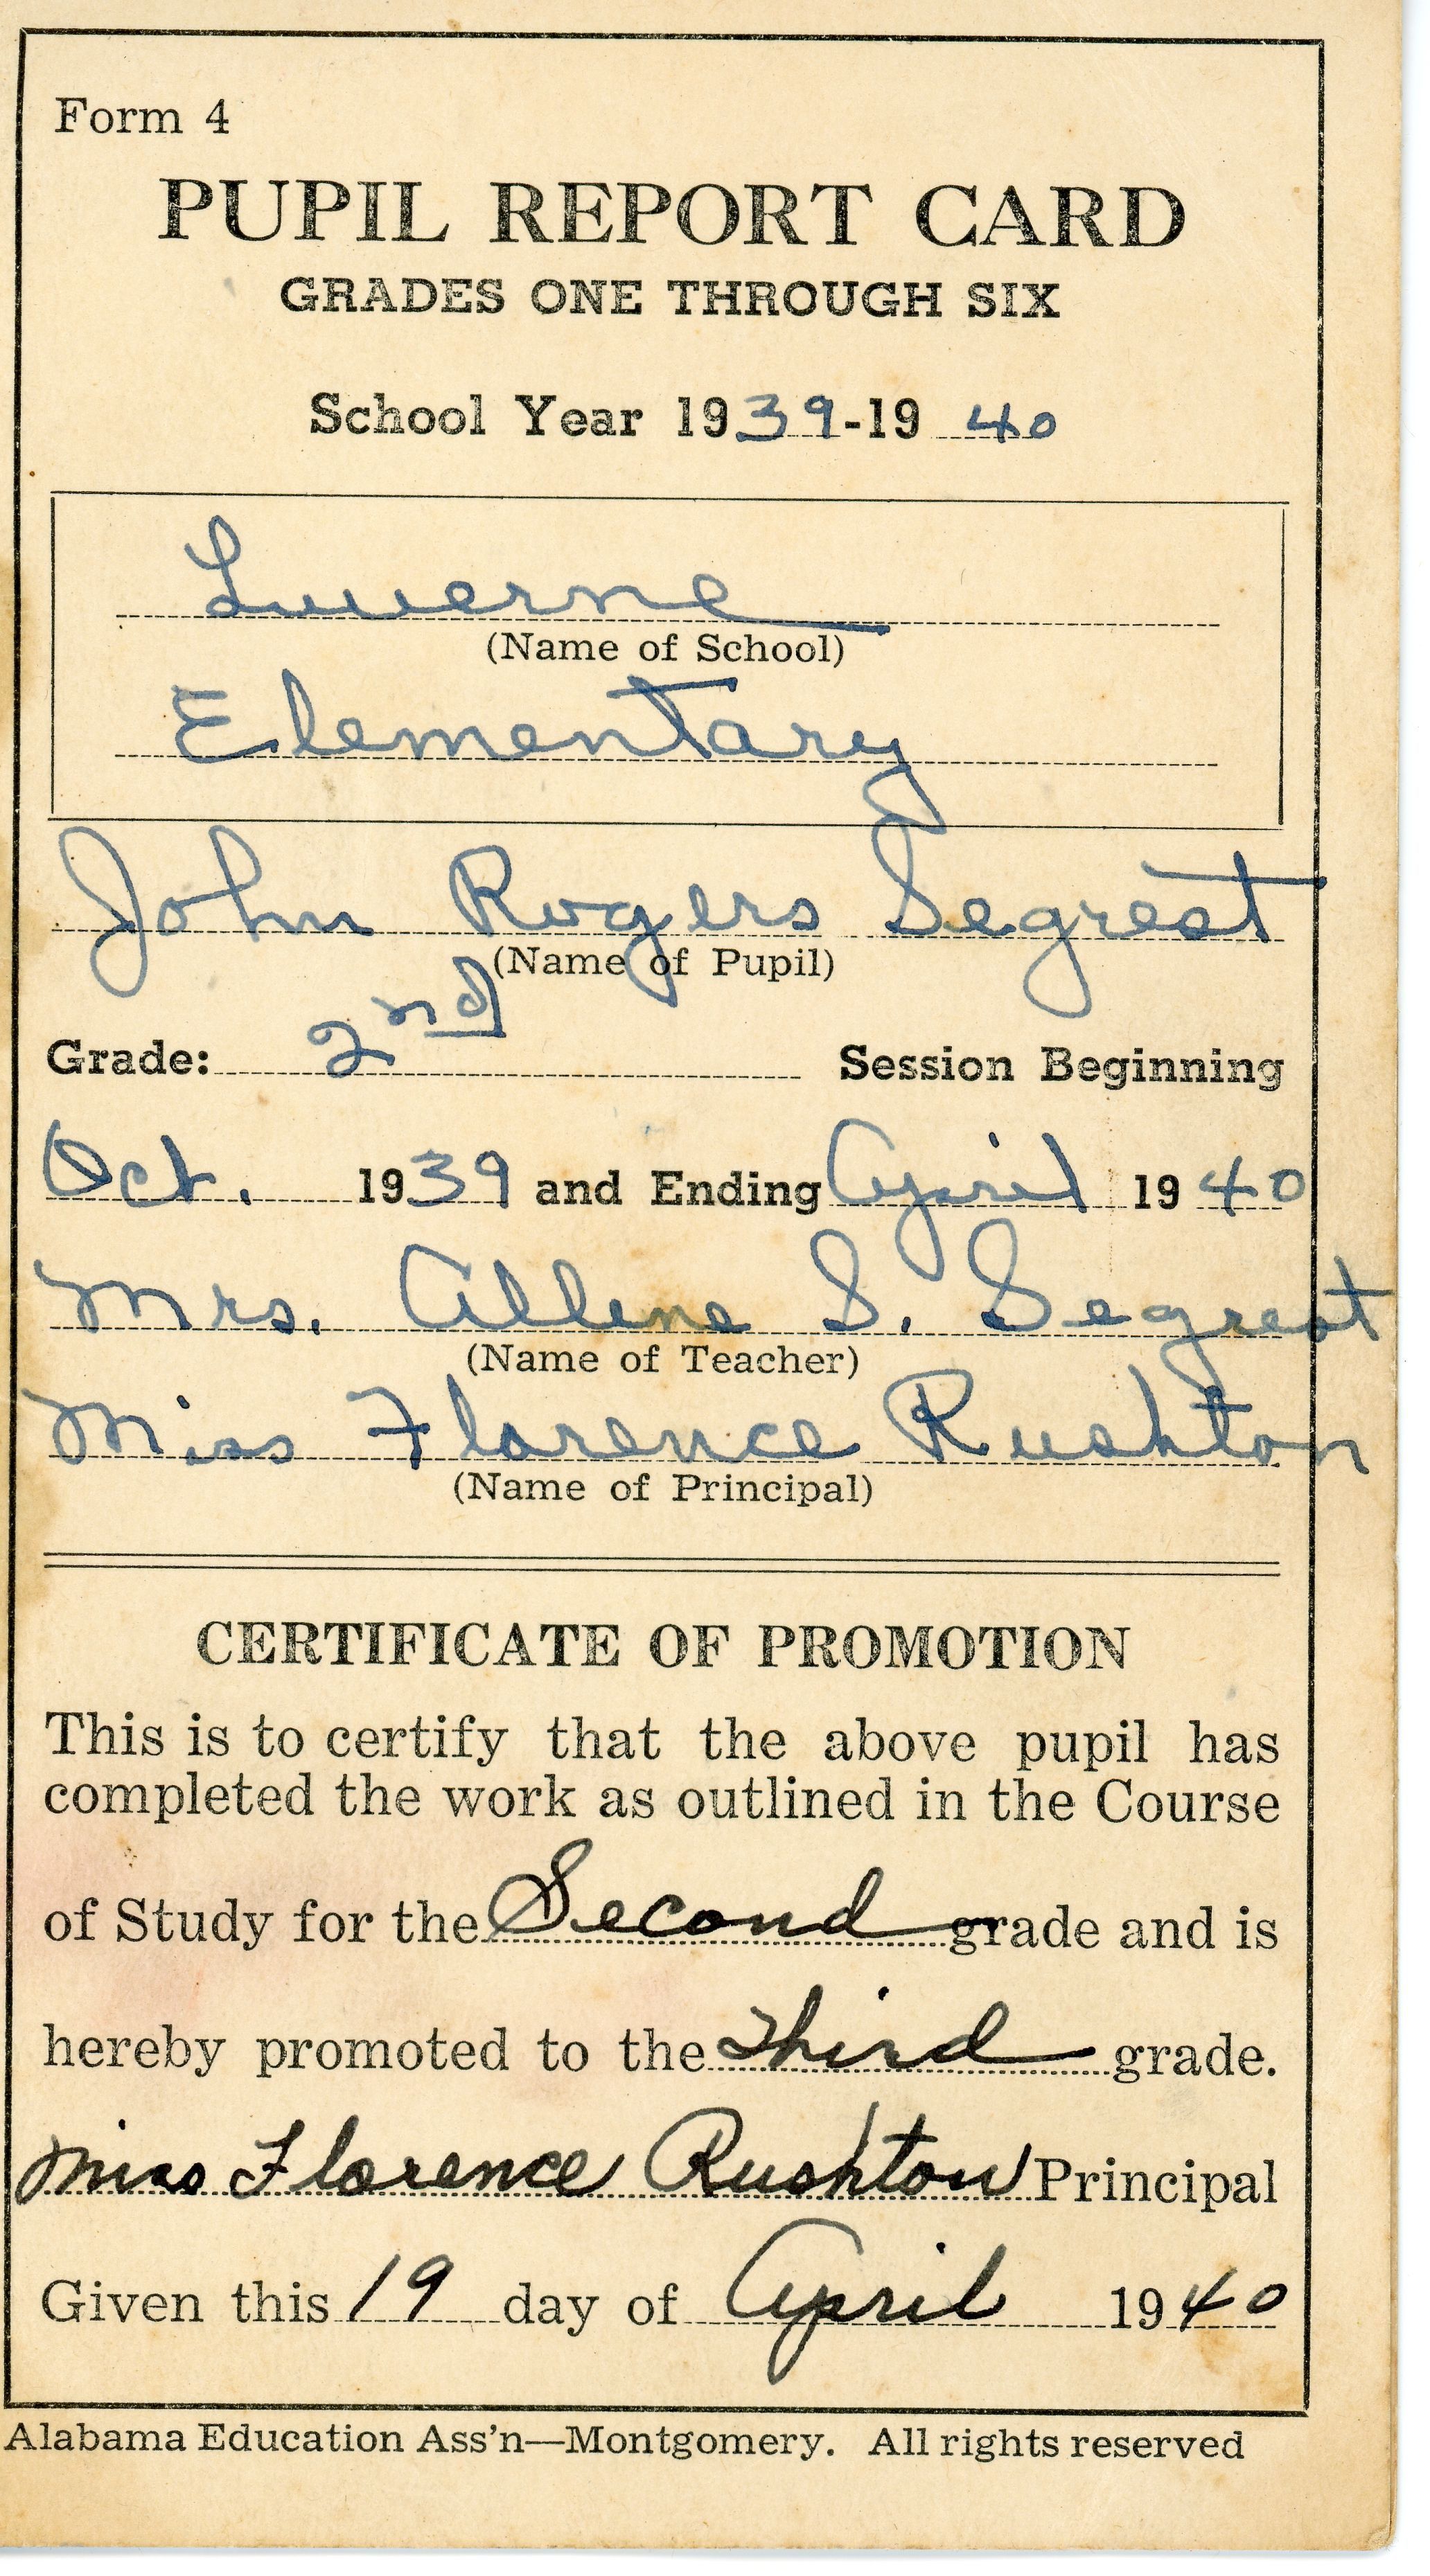 Form 4
PUPIL REPORT CARD
GRADES ONE THROUGH SIX
School Year 1939-19 40
Luverne
(Name of School)
Elementary
John Rogers Segrest
(Name of Pupil)
Grade: 2nd Session Beginning
Oct. 1939 and Ending April 1940
Mrs. Allene S. Segrest
(Name of Teacher)
Miss Florence Rushton
(Name of Principal)
CERTIFICATE OF PROMOTION
This is to certify that the above pupil has
completed the work as outlined in the Course
of Study for the Second grade and is
hereby promoted to the Third grade.
Miss Florence Rushton Principal
Given this 19 day of April 1940
Alabama Education Ass'n—Montgomery. All rights reserved